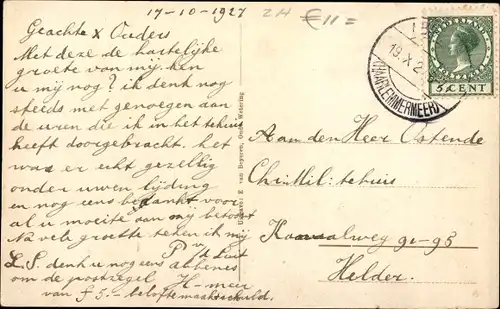 17-10-1927
ZH €11=
Geachte x Ouders
Met deze de hartelijke
groete van mij. ken
u mij nog? ik denk nog
steeds met genoegen aan
de uren die ik in het tehuis
heeft doorgebracht. het
was er echt gezellig
onder uwen lijding
en nog eens bedankt voor
al u moeite aan mij betoont
Na vele groette teken ik mij
P v/d Luit
L.S. denk u nog eens abbenes
om de postzegel H-meer
van f 5.- belofte maakt schuld.
Uitgave: E. van Beynen, Oude Wetering
19.X.2
(HAARLEMMERMEER)
5 CENT
Aan den Heer Ostende
Chr. Mil. tehuis
Kanaalweg 91-93
Helder.